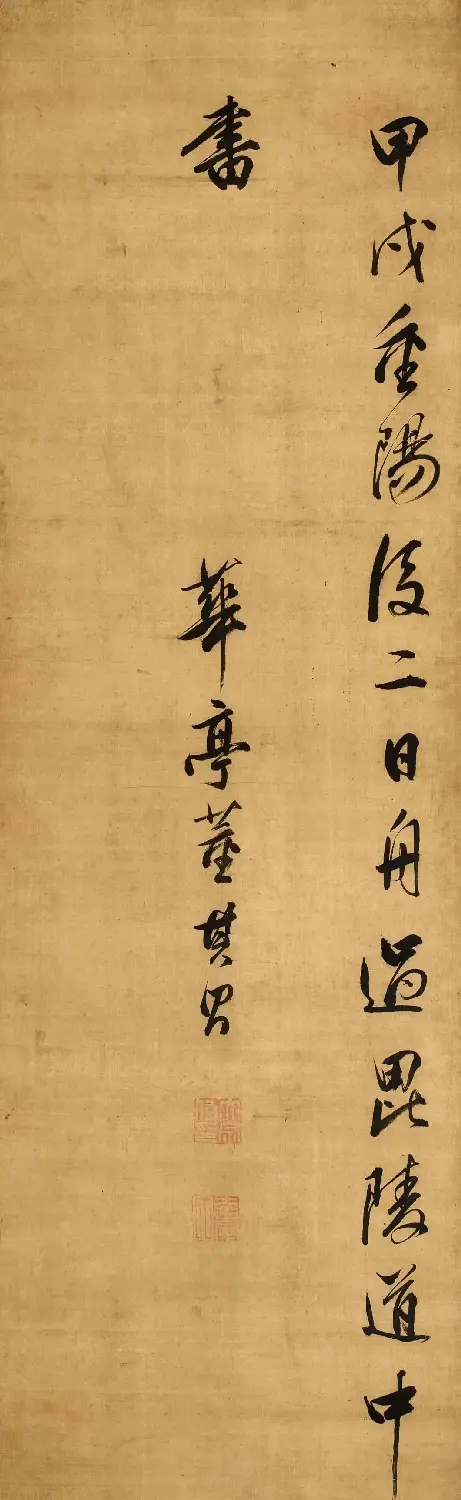 甲戌重陽後二日舟過毘陵道中
書
華亭董其昌